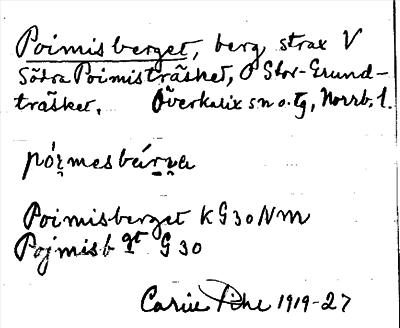 Poimisberget, berg strax V
Södra Poimisträsket, O Stor-Grund-
träsket. Överkalix sn o. tg, Norrb. l.
Poimisberget K G30NM
Pojmisb gt G 30
Carin Pihl 1919-27